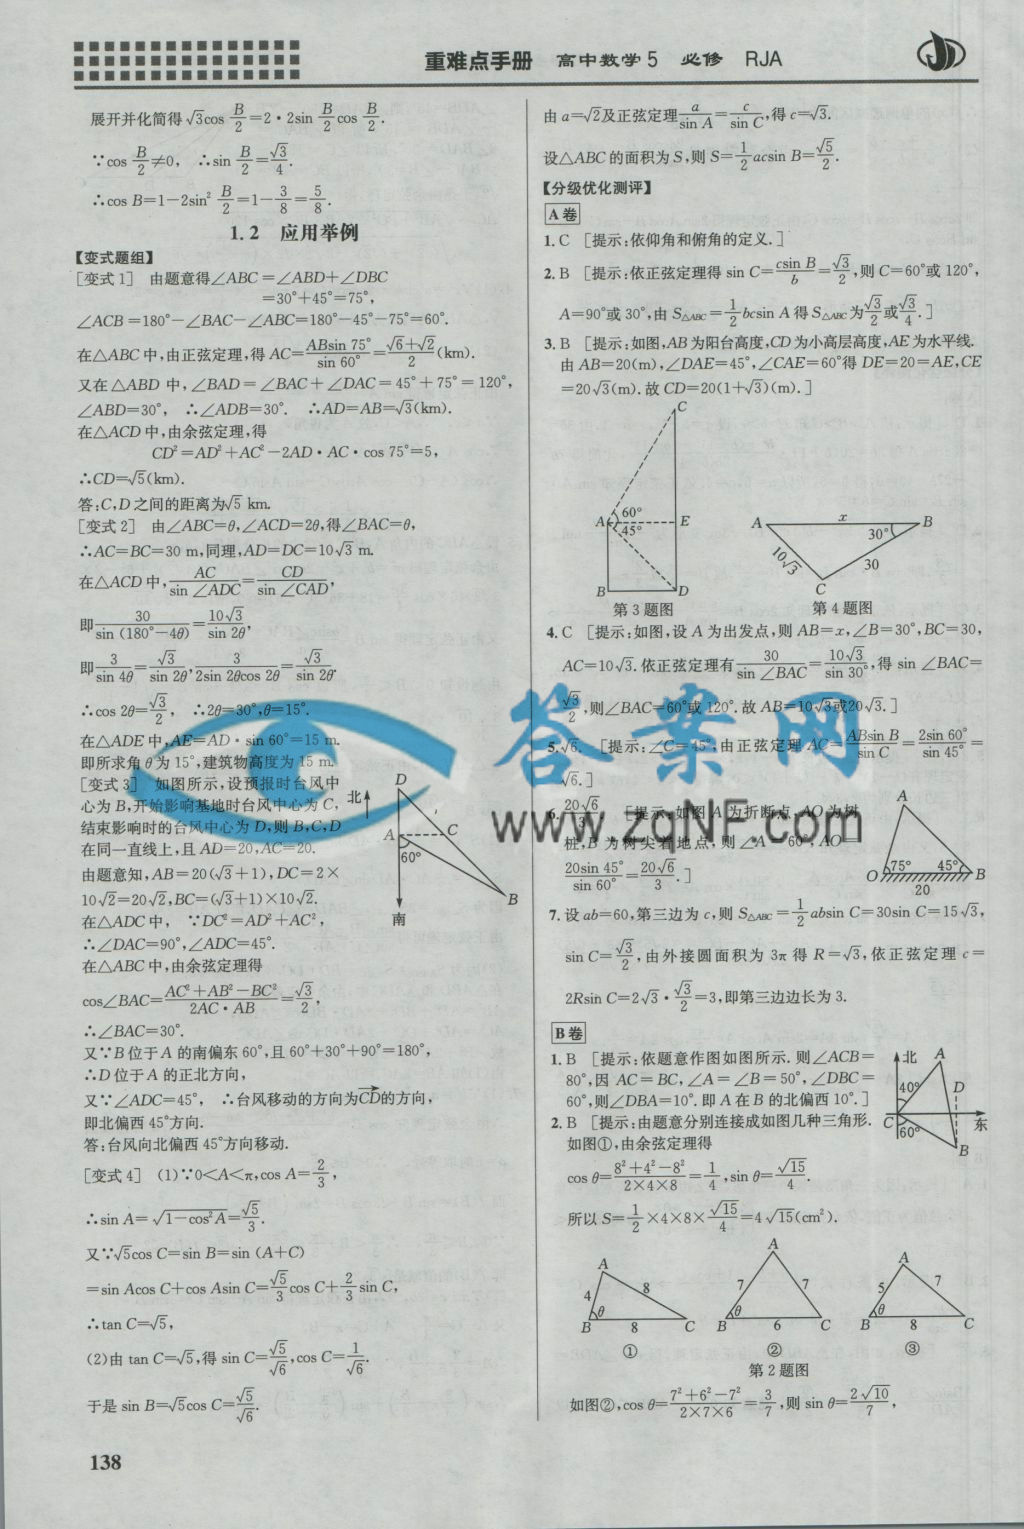 重难点手册 高中数学5 必修 RJA
展开并化简得√3cos B/2=2·2sin B/2 cos B/2.
∵cos B/2≠0, ∴sin B/2=√3/4.
∴cos B=1-2sin² B/2=1-3/8=5/8.
1.2 应用举例
【变式题组】
[变式1] 由题意得∠ABC=∠ABD+∠DBC
=30°+45°=75°,
∠ACB=180°-∠BAC-∠ABC=180°-45°-75°=60°.
在△ABC中,由正弦定理,得AC=ABsin 75°/sin 60°=(√6+√2)/2(km).
又在△ABD中,∠BAD=∠BAC+∠DAC=45°+75°=120°,
∠ABD=30°, ∴∠ADB=30°. ∴AD=AB=√3(km).
在△ACD中,由余弦定理,得
CD²=AD²+AC²-2AD·AC·cos 75°=5,
∴CD=√5(km).
答:C,D之间的距离为√5 km.
[变式2] 由∠ABC=θ,∠ACD=2θ,得∠BAC=θ,
∴AC=BC=30 m,同理,AD=DC=10√3 m.
在△ACD中,AC/sin∠ADC=CD/sin∠CAD,
即30/sin(180°-4θ)=10√3/sin 2θ,
即3/sin 4θ=√3/sin 2θ,3/2sin 2θcos 2θ=√3/sin 2θ.
∴cos 2θ=√3/2, ∴2θ=30°,θ=15°.
在△ADE中,AE=AD·sin 60°=15 m.
即所求角θ为15°,建筑物高度为15 m.
[变式3] 如图所示,设预报时台风中
心为B,开始影响基地时台风中心为C,
结束影响时的台风中心为D,则B,C,D
在同一直线上,且AD=20,AC=20.
由题意知,AB=20(√3+1),DC=2×
10√2=20√2,BC=(√3+1)×10√2.
在△ADC中, ∵DC²=AD²+AC²,
∴∠DAC=90°,∠ADC=45°.
在△ABC中,由余弦定理得
cos∠BAC=(AC²+AB²-BC²)/2AC·AB=√3/2,
∴∠BAC=30°.
又∵B位于A的南偏东60°,且60°+30°+90°=180°,
∴D位于A的正北方向,
又∵∠ADC=45°, ∴台风移动的方向为CD的方向,
即北偏西45°方向.
答:台风向北偏西45°方向移动.
北
D
A
C
60°
B
南
[变式4] (1)∵0<A<π,cos A=2/3,
∴sin A=√(1-cos²A)=√5/3.
又∵√5cos C=sin B=sin (A+C)
=sin Acos C+cos Asin C=√5/3 cos C+2/3 sin C,
∴tan C=√5,
(2)由tan C=√5,得sin C=√5/√6,cos C=1/√6.
于是sin B=√5cos C=√5/√6.
138
由a=√2及正弦定理a/sin A=c/sin C,得c=√3.
设△ABC的面积为S,则S=1/2 acsin B=√5/2.
【分级优化测评】
A卷
1. C [提示:依仰角和俯角的定义.]
2. B [提示:依正弦定理得sin C=csin B/b=√3/2,则C=60°或120°,
A=90°或30°,由S△ABC=1/2 bcsin A得S△ABC为√3/2或√3/4.]
3. B [提示:如图,AB为阳台高度,CD为小高层高度,AE为水平线.
由AB=20(m),∠DAE=45°,∠CAE=60°得DE=20=AE,CE
=20√3(m).故CD=20(1+√3)(m).]
C
A
60°
45°
E
B
D
第3题图
A
x
B
30°
10√3
30
C
第4题图
4. C [提示:如图,设A为出发点,则AB=x,∠B=30°,BC=30,
AC=10√3.依正弦定理有30/sin∠BAC=10√3/sin 30°,得sin∠BAC=
√3/2,则∠BAC=60°或120°.故AB=10√3或20√3.]
5. √6. [提示:∠C=45°,由正弦定理AC=ABsin B/sin C=2sin 60°/sin 45°=
√6.]
6. 20√6/3 [提示:如图A为折断点,AO为树
桩,B为树尖着地点,则∠A=60°,AO=
20sin 45°/sin 60°=20√6/3.]
A
75°
45°
O
B
20
7. 设ab=60,第三边为c,则S△ABC=1/2 absin C=30sin C=15√3,
sin C=√3/2,由外接圆面积为3π得R=√3,依正弦定理c=
2Rsin C=2√3·√3/2=3,即第三边边长为3.
B卷
1. B [提示:依题意作图如图所示.则∠ACB=
80°,因AC=BC,∠A=∠B=50°,∠DBC=
60°,则∠DBA=10°.即A在B的北偏西10°.]
北
A
40°
D
C
东
60°
B
2. B [提示:由题意分别连接成如图几种三角形.
如图①,由余弦定理得
cos θ=(8²+4²-8²)/(2×4×8)=1/4,sin θ=√15/4.
所以S=1/2×4×8×√15/4=4√15(cm²).
A
4
8
θ
B
8
C
①
A
7
7
θ
B
6
C
②
A
5
7
θ
B
8
C
③
第2题图
如图②,cos θ=(7²+6²-7²)/(2×7×6)=3/7,则sin θ=2√10/7,
答案网
www.zqNF.com